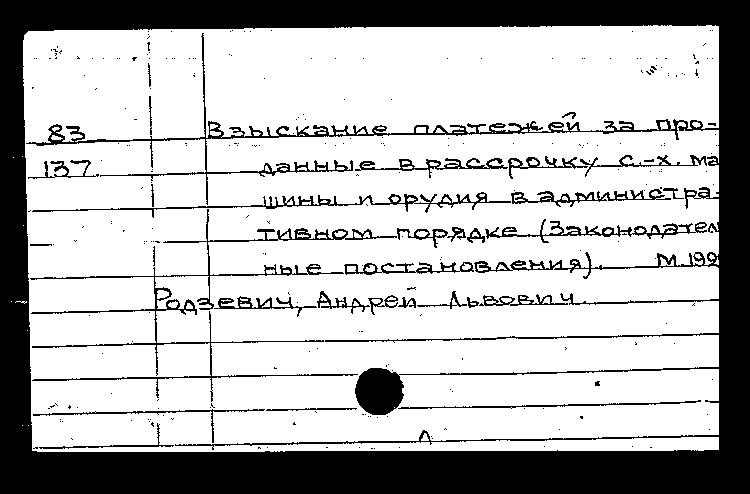 83 Взыскание платежей за про-
137 данные в рассрочку с.-х. ма
шины и орудия в администра-
тивном порядке. (Законодател
ные постановления). М. 192
Родзевич, Андрей Львович.